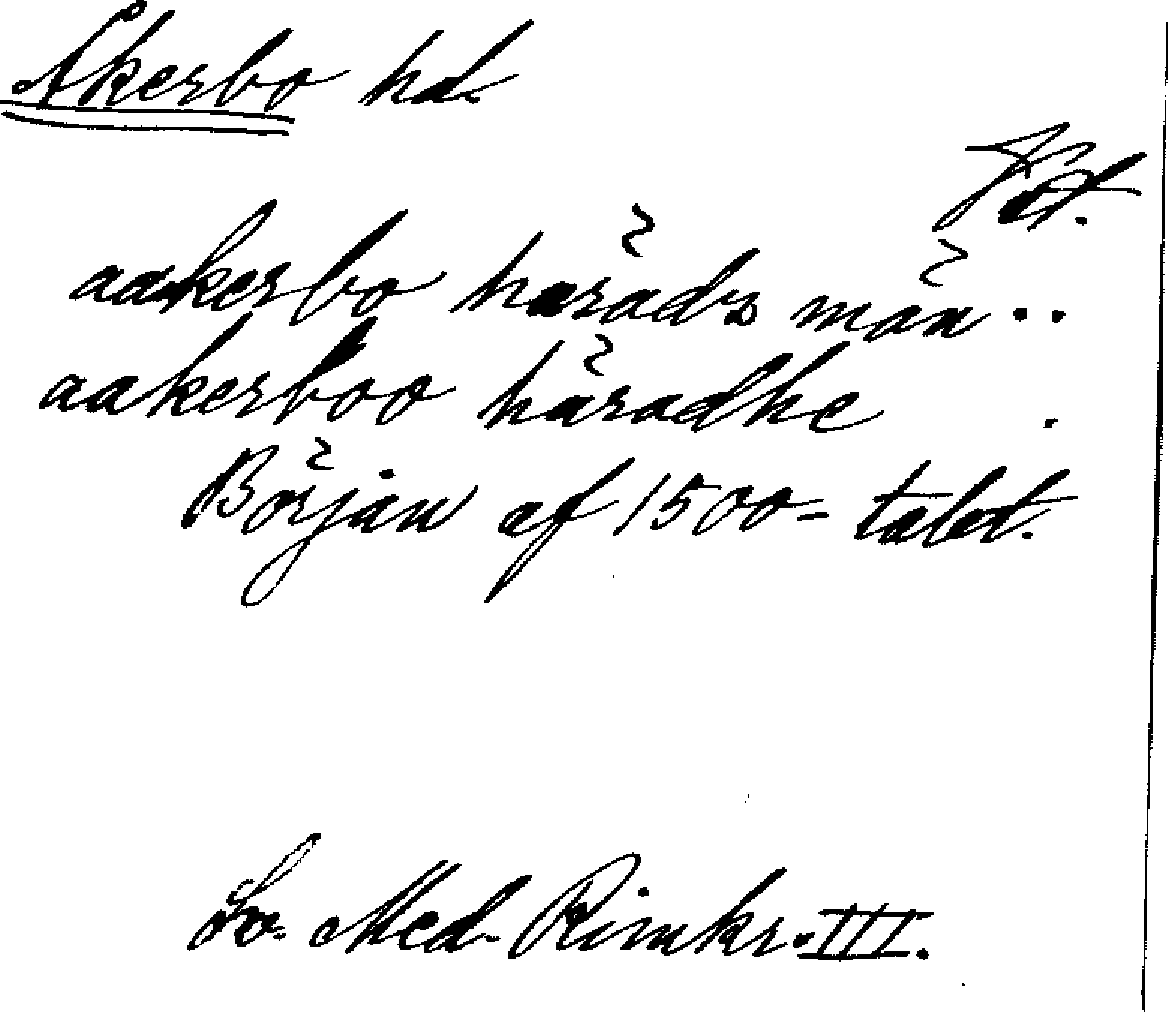 Åkerbo hd.
Vst.
aakerbo härads män ..
aakerboo häradhe .
Början af 1500-talet.
Sv. Med. Rimkr. III.